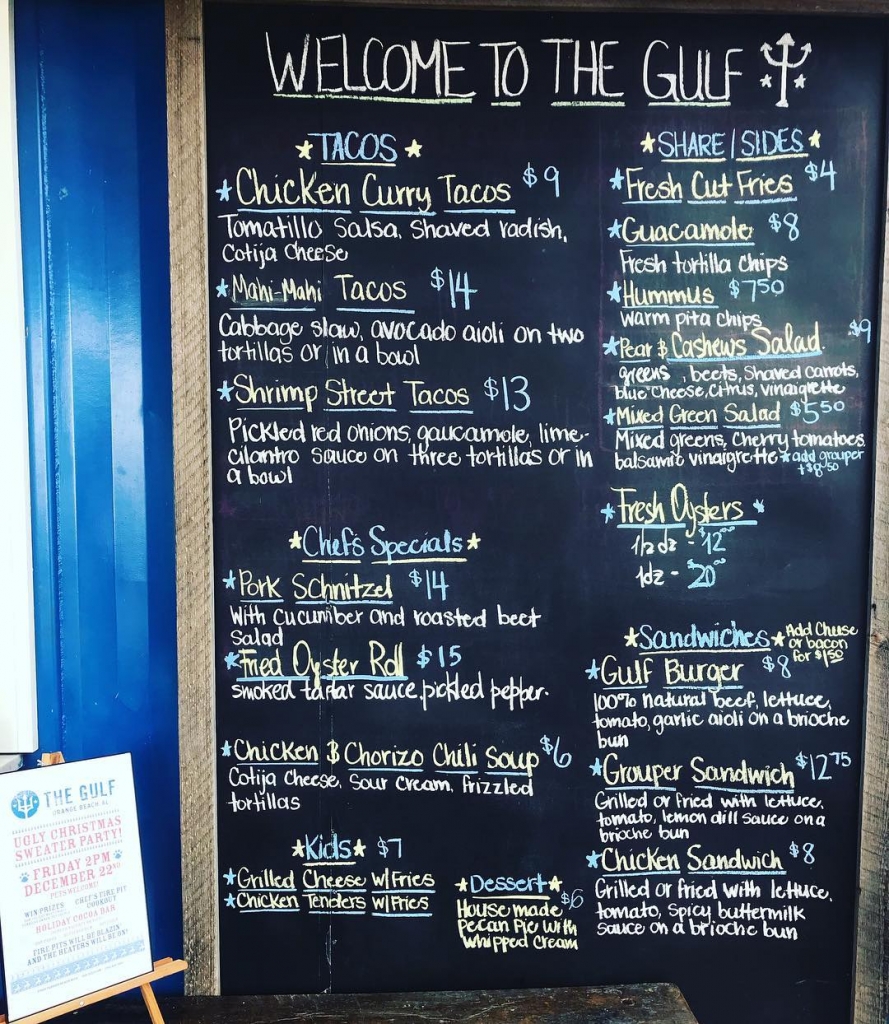 WELCOME TO THE GULF
★ TACOS ★
★ Chicken Curry Tacos $9
Tomatillo Salsa, Shaved radish,
Cotija Cheese
★ Mahi-Mahi Tacos $14
Cabbage slaw, avocado aioli on two
tortillas or in a bowl
★ Shrimp Street Tacos $13
Pickled red onions, gaucamole, lime-
cilantro sauce on three tortillas or in
a bowl
★ Chefs Specials ★
★ Pork Schnitzel $14
with cucumber and roasted beet
salad
★ Fried Oyster Roll $15
smoked tartar sauce, pickled pepper.
★ Chicken & Chorizo Chili Soup $6
Cotija Cheese, Sour Cream, frizzled
tortillas
★ Kids ★ $7
★ Grilled Cheese w/Fries
★ Chicken Tenders w/Fries
★ Dessert ★
$6
House made
Pecan Pie with
whipped Cream
★ SHARE / SIDES ★
★ Fresh Cut Fries $4
★ Guacamole $8
Fresh tortilla chips
★ Hummus $7 50
warm pita chips
★ Pear & Cashews Salad. $9
greens, beets, shaved carrots,
blue cheese, citrus, vinaigrette
★ Mixed Green Salad $5 50
Mixed greens, Cherry tomatoes
balsamic vinaigrette ★ add grouper
+$8.50
★ Fresh Oysters ★
1/2 dz - $12 00
1dz - $20 00
★ Sandwiches ★ Add Cheese
or bacon
for $1 50
★ Gulf Burger $8
100% natural beef, lettuce,
tomato, garlic aioli on a brioche
bun
★ Grouper Sandwich $12 75
Grilled or fried with lettuce,
tomato, lemon dill sauce on a
brioche bun
★ Chicken Sandwich $8
Grilled or fried with lettuce,
tomato, spicy buttermilk
sauce on a brioche bun
THE GULF
ORANGE BEACH, AL
UGLY CHRISTMAS
SWEATER PARTY!
FRIDAY 2PM
DECEMBER 22ND
PETS WELCOME!
WIN PRIZES
CHEF'S FIRE PIT
COOKOUT
HOLIDAY COCOA BAR
FIRE PITS WILL BE BLAZIN
AND THE HEATERS WILL BE ON!